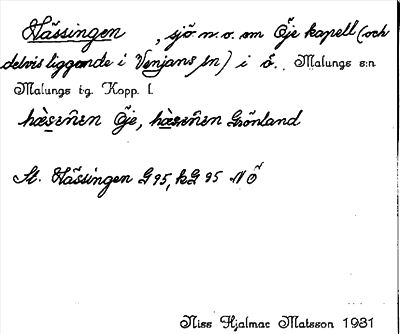 Hässingen , sjö n.o. om Öje kapell (och
delvis liggande i Venjans sn) i ö. Malungs s:n
Malungs tg. Kopp. l.
Öje, Grönland
St. Hässingen G 95, kG 95 NÖ
Niss Hjalmar Matsson 1931